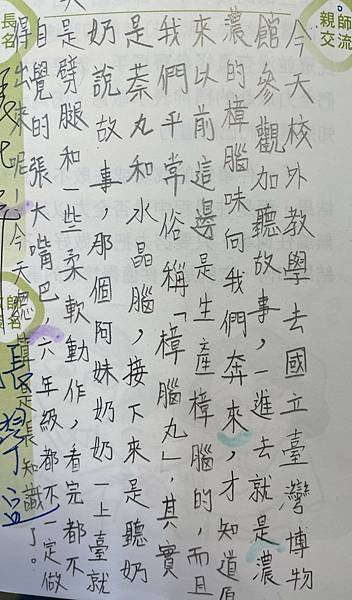 親師交流
今天校外教學去國立臺灣博物
館參觀加聽故事，一進去就是濃
濃的樟腦味向我們奔來，才知道原
來以前這邊是生產樟腦的，而且
我們平常俗稱「樟腦丸」，其實
是萘丸和水晶腦，接下來是聽奶
奶說故事，那個阿妹奶奶一上臺就
是劈腿和一些柔軟動作，看完都不
自覺的張大嘴巴 六年級都不一定做
得出來呢！今天還真是長知識了。
長名
師名